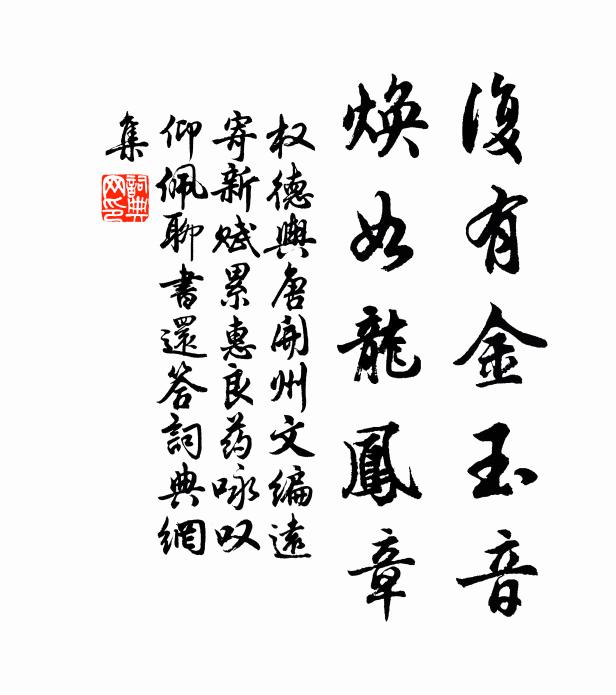 復有金玉音
煥如龍鳳章
权德輿唐開州文编遠
寄新赋累惠良药咏叹
仰佩聊書還答詞典網
集
詞典
网印